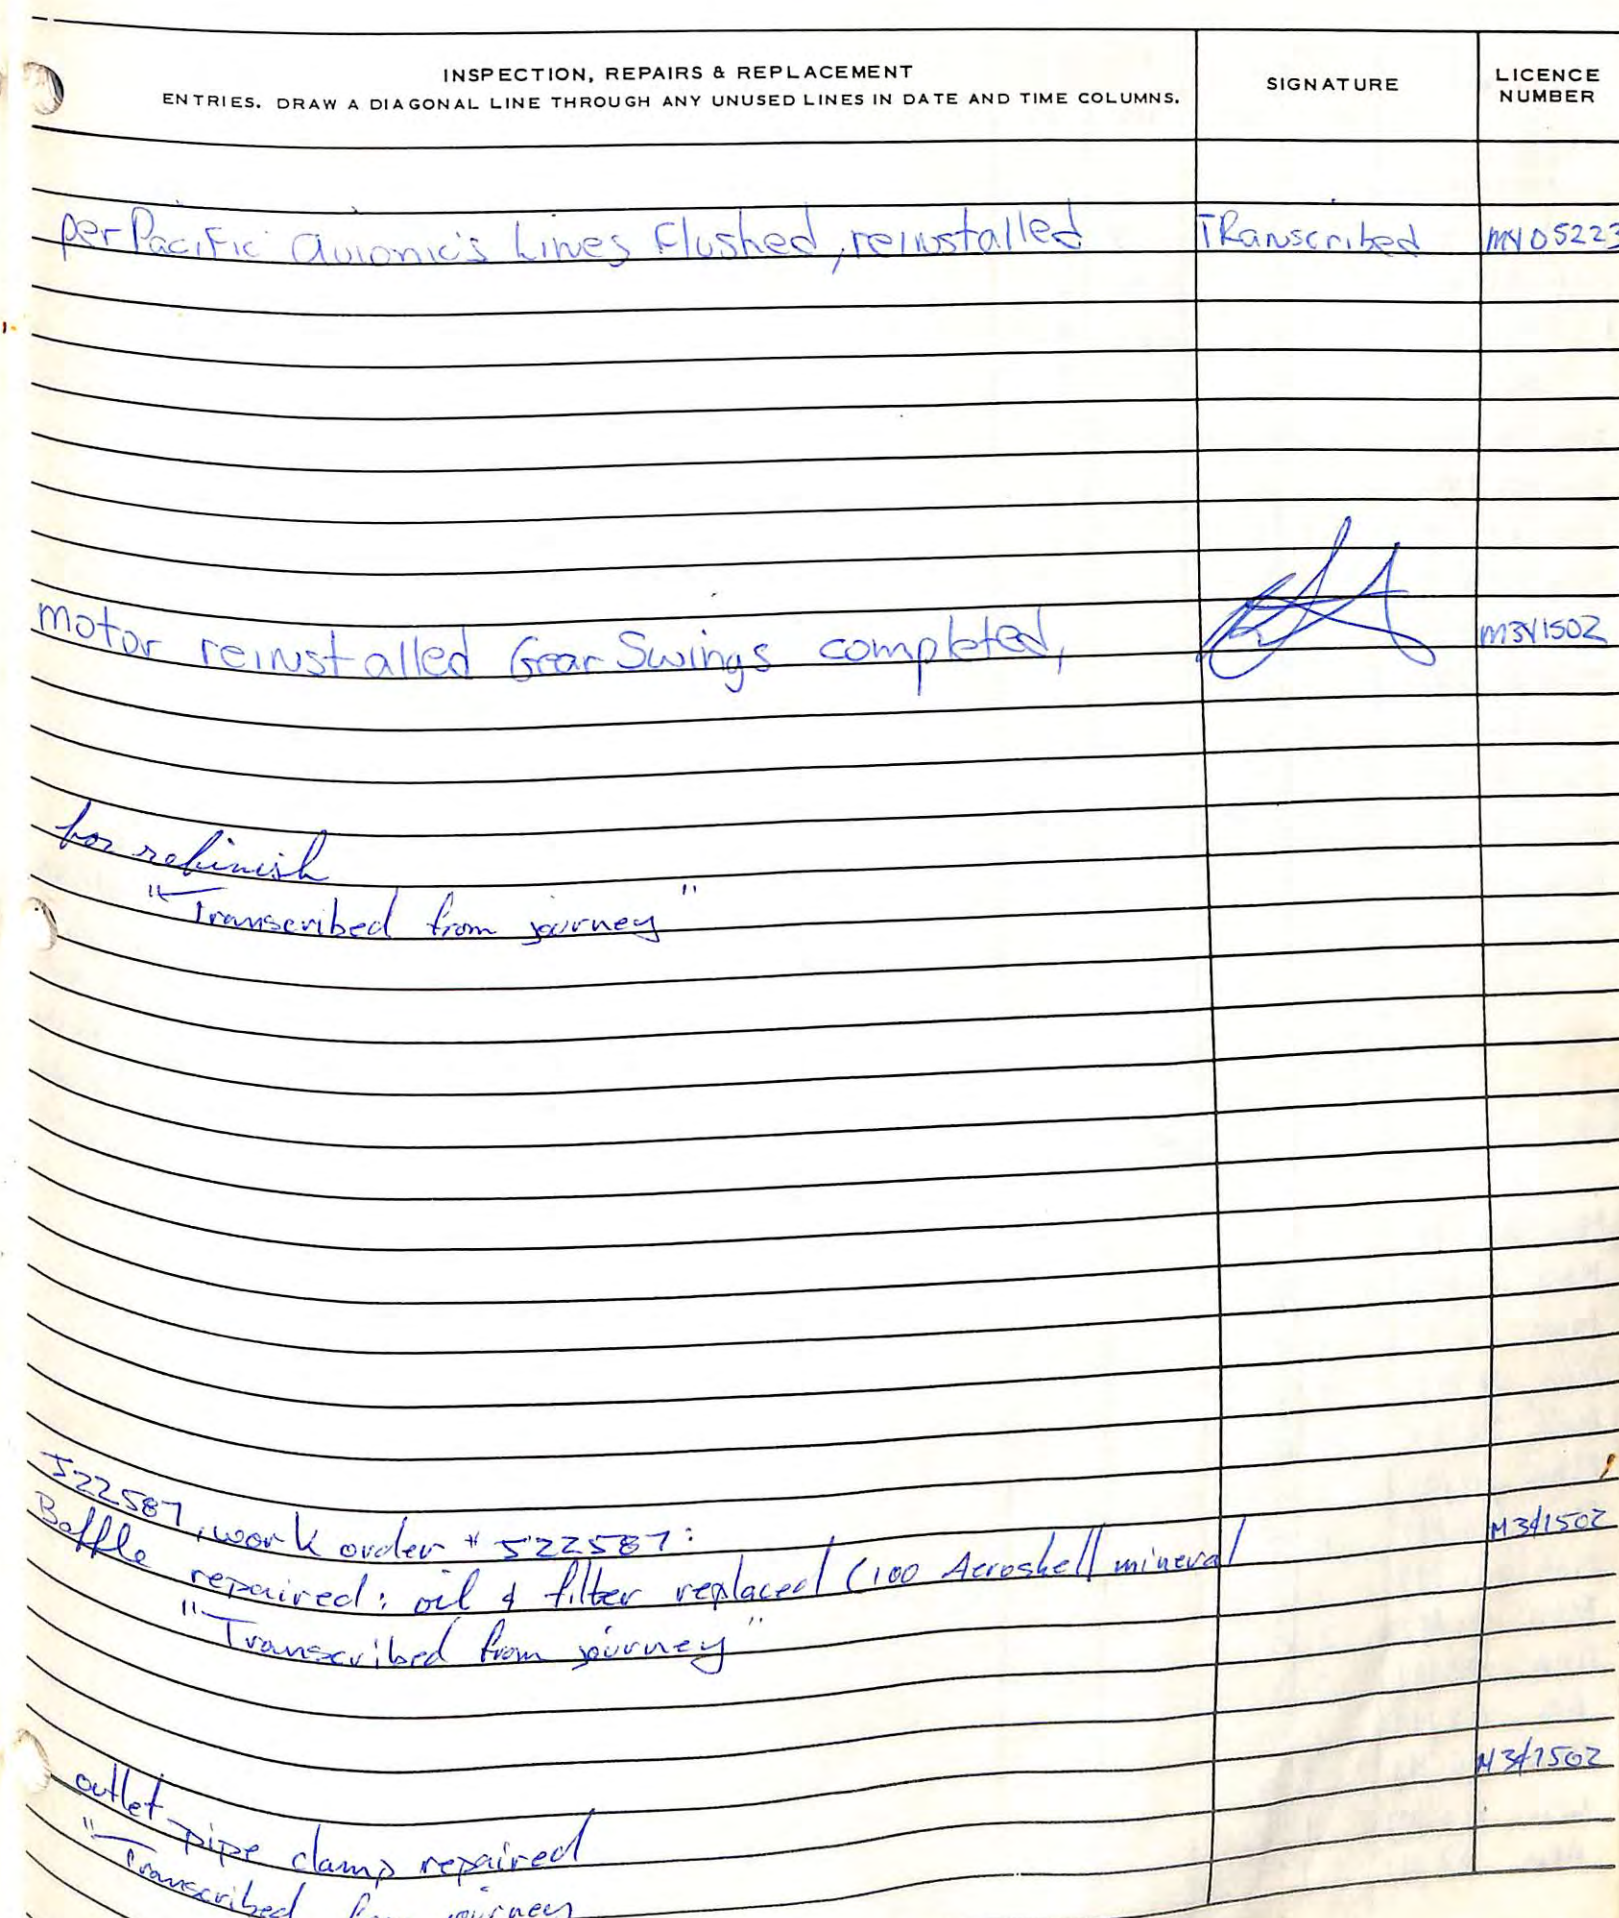 INSPECTION, REPAIRS & REPLACEMENT
ENTRIES. DRAW A DIAGONAL LINE THROUGH ANY UNUSED LINES IN DATE AND TIME COLUMNS.
SIGNATURE
LICENCE
NUMBER
per Pacific Avionic's Lines Flushed, reinstalled TRanscribed
motor reinstalled Gear Swings completed,
for refinish
"Transcribed from journey"
522587, work order # 522587:
Baffle repaired: oil & filter replaced (100 Aeroshell mineral
"Transcribed from journey"
outlet pipe clamp repaired
"Transcribed from journey